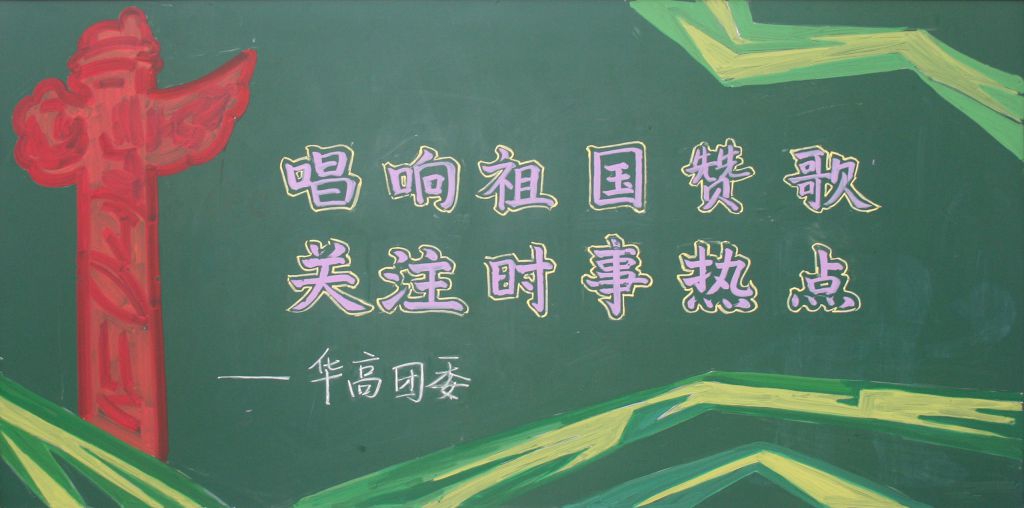 唱响祖国赞歌
关注时事热点
——华高团委